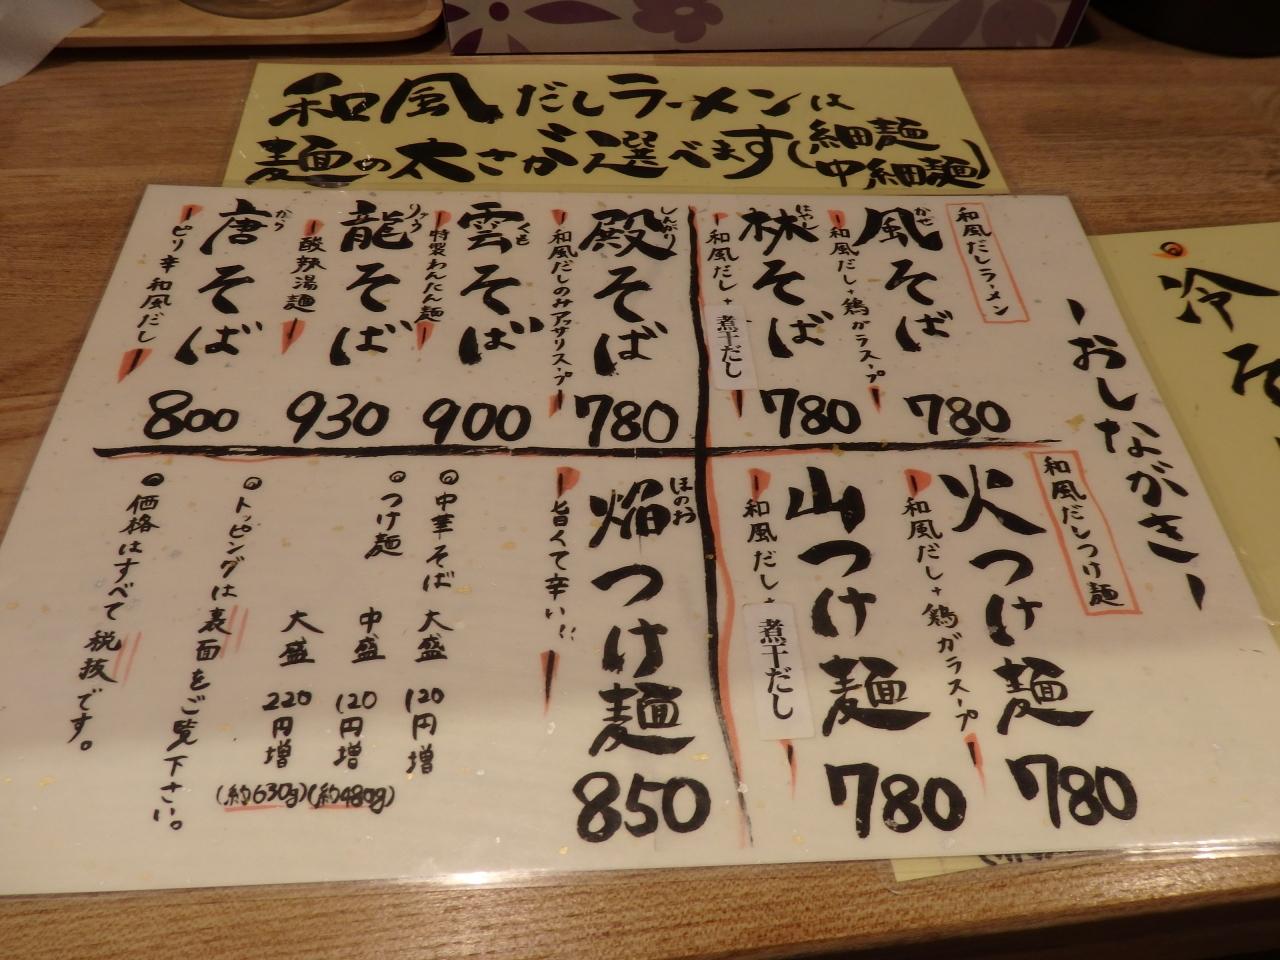 和風だしラーメンは
麺の太さが選べます(細麺
中細麺)
ーおしながきー
和風だしラーメン
風そば
かぜ
和風だし+鶏ガラスープ
780
林そば
はやし
和風だし+煮干だし
780
殿そば
しんがり
和風だしのみアッサリスープ
780
雲そば
くも
特製わんたん麺
900
龍そば
りゅう
酸辣湯麺
930
唐そば
から
ピリ辛和風だし
800
和風だしつけ麺
火つけ麺
和風だし+鶏ガラスープ
780
山つけ麺
和風だし+煮干だし
780
焔つけ麺
ほのお
旨くて辛い!!
850
◎中華そば 大盛 120円増
◎つけ麺 中盛 120円増 (約480g)
大盛 220円増 (約630g)
◎トッピングは裏面をご覧下さい。
◎価格はすべて税抜です。
◎冷そ